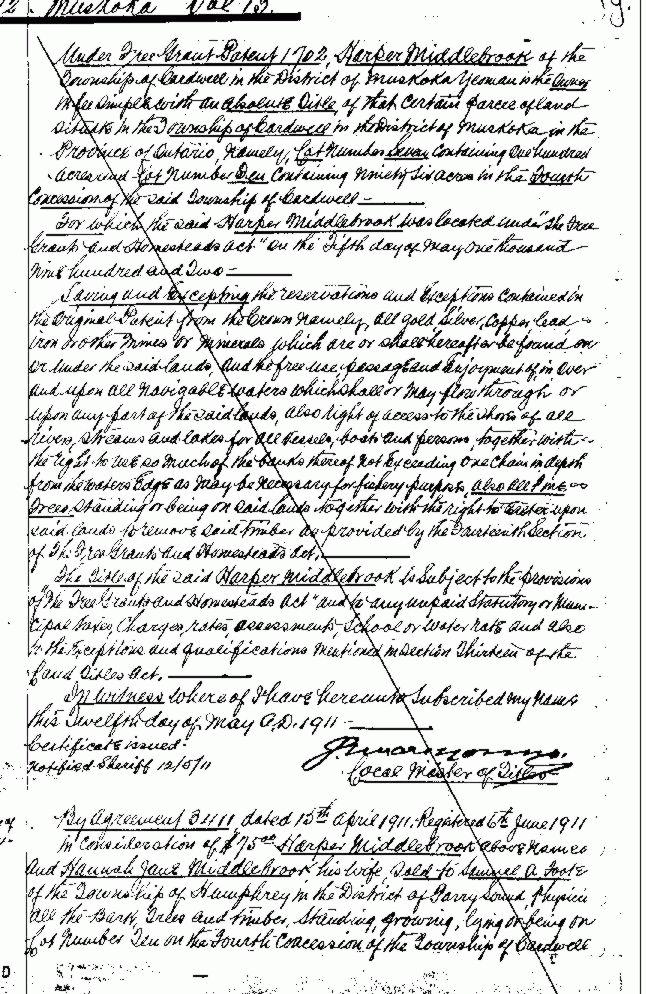 12 Muskoka Vol 13.
Under Free Grant Patent 1702, Harper Middlebrook of the
Township of Cardwell in the District of Muskoka Yeoman is the Owner
in fee simple with an absolute Title of that certain parcel of land
situate in the Township of Cardwell in the District of Muskoka in the
Province of Ontario, namely, Lot Number Seven Containing One hundred
acres and Lot Number Ten Containing Ninety Six acres in the Fourth
Concession of the said Township of Cardwell
For which the said Harper Middlebrook was located under "The Free
Grants and Homesteads Act" on the Fifth day of May One thousand
Nine hundred and Two
Saving and Excepting the reservations and Exceptions contained in
the original Patent from the Crown namely, all gold, Silver, Copper, lead
iron or other mines or minerals which are or shall hereafter be found on
or under the said lands, and the free use, passage and enjoyment of, in over
and upon all navigable waters which shall or may flow through or
upon any part of the said lands, also right of access to the shores of all
rivers, streams and lakes for all vessels, boats and persons, together with
the right to use so much of the banks thereof not Exceeding one chain in depth
from the waters Edge as may be necessary for fishery purposes, also all Pine
Trees standing or being on said lands together with the right to Enter upon
said lands to remove said timber as provided by the Fourteenth Section
of The Free Grants and Homesteads Act.
The Title of the said Harper Middlebrook is Subject to the provisions
of "The Free Grants and Homesteads Act" and to any unpaid Statutory or Muni-
cipal taxes, Charges, rates, assessments, School or water rate and also
to the Exceptions and qualifications mentioned in Section Thirteen of the
Land Titles Act.
In witness whereof I have hereunto Subscribed my name
this Twelfth day of May A.D. 1911
Certificate issued.
Notified Sheriff 12/5/11
Local Master of Titles
By Agreement 3411 dated 15th April 1911. Registered 6th June 1911
in consideration of $75.00 Harper Middlebrook above named
and Hannah Jane Middlebrook his wife, sold to Samuel A. Foote
of the Township of Humphrey in the District of Parry Sound, Physician
all the Bark, Trees and timber, standing, growing, lying or being on
Lot Number Ten on the Fourth Concession of the Township of Cardwell